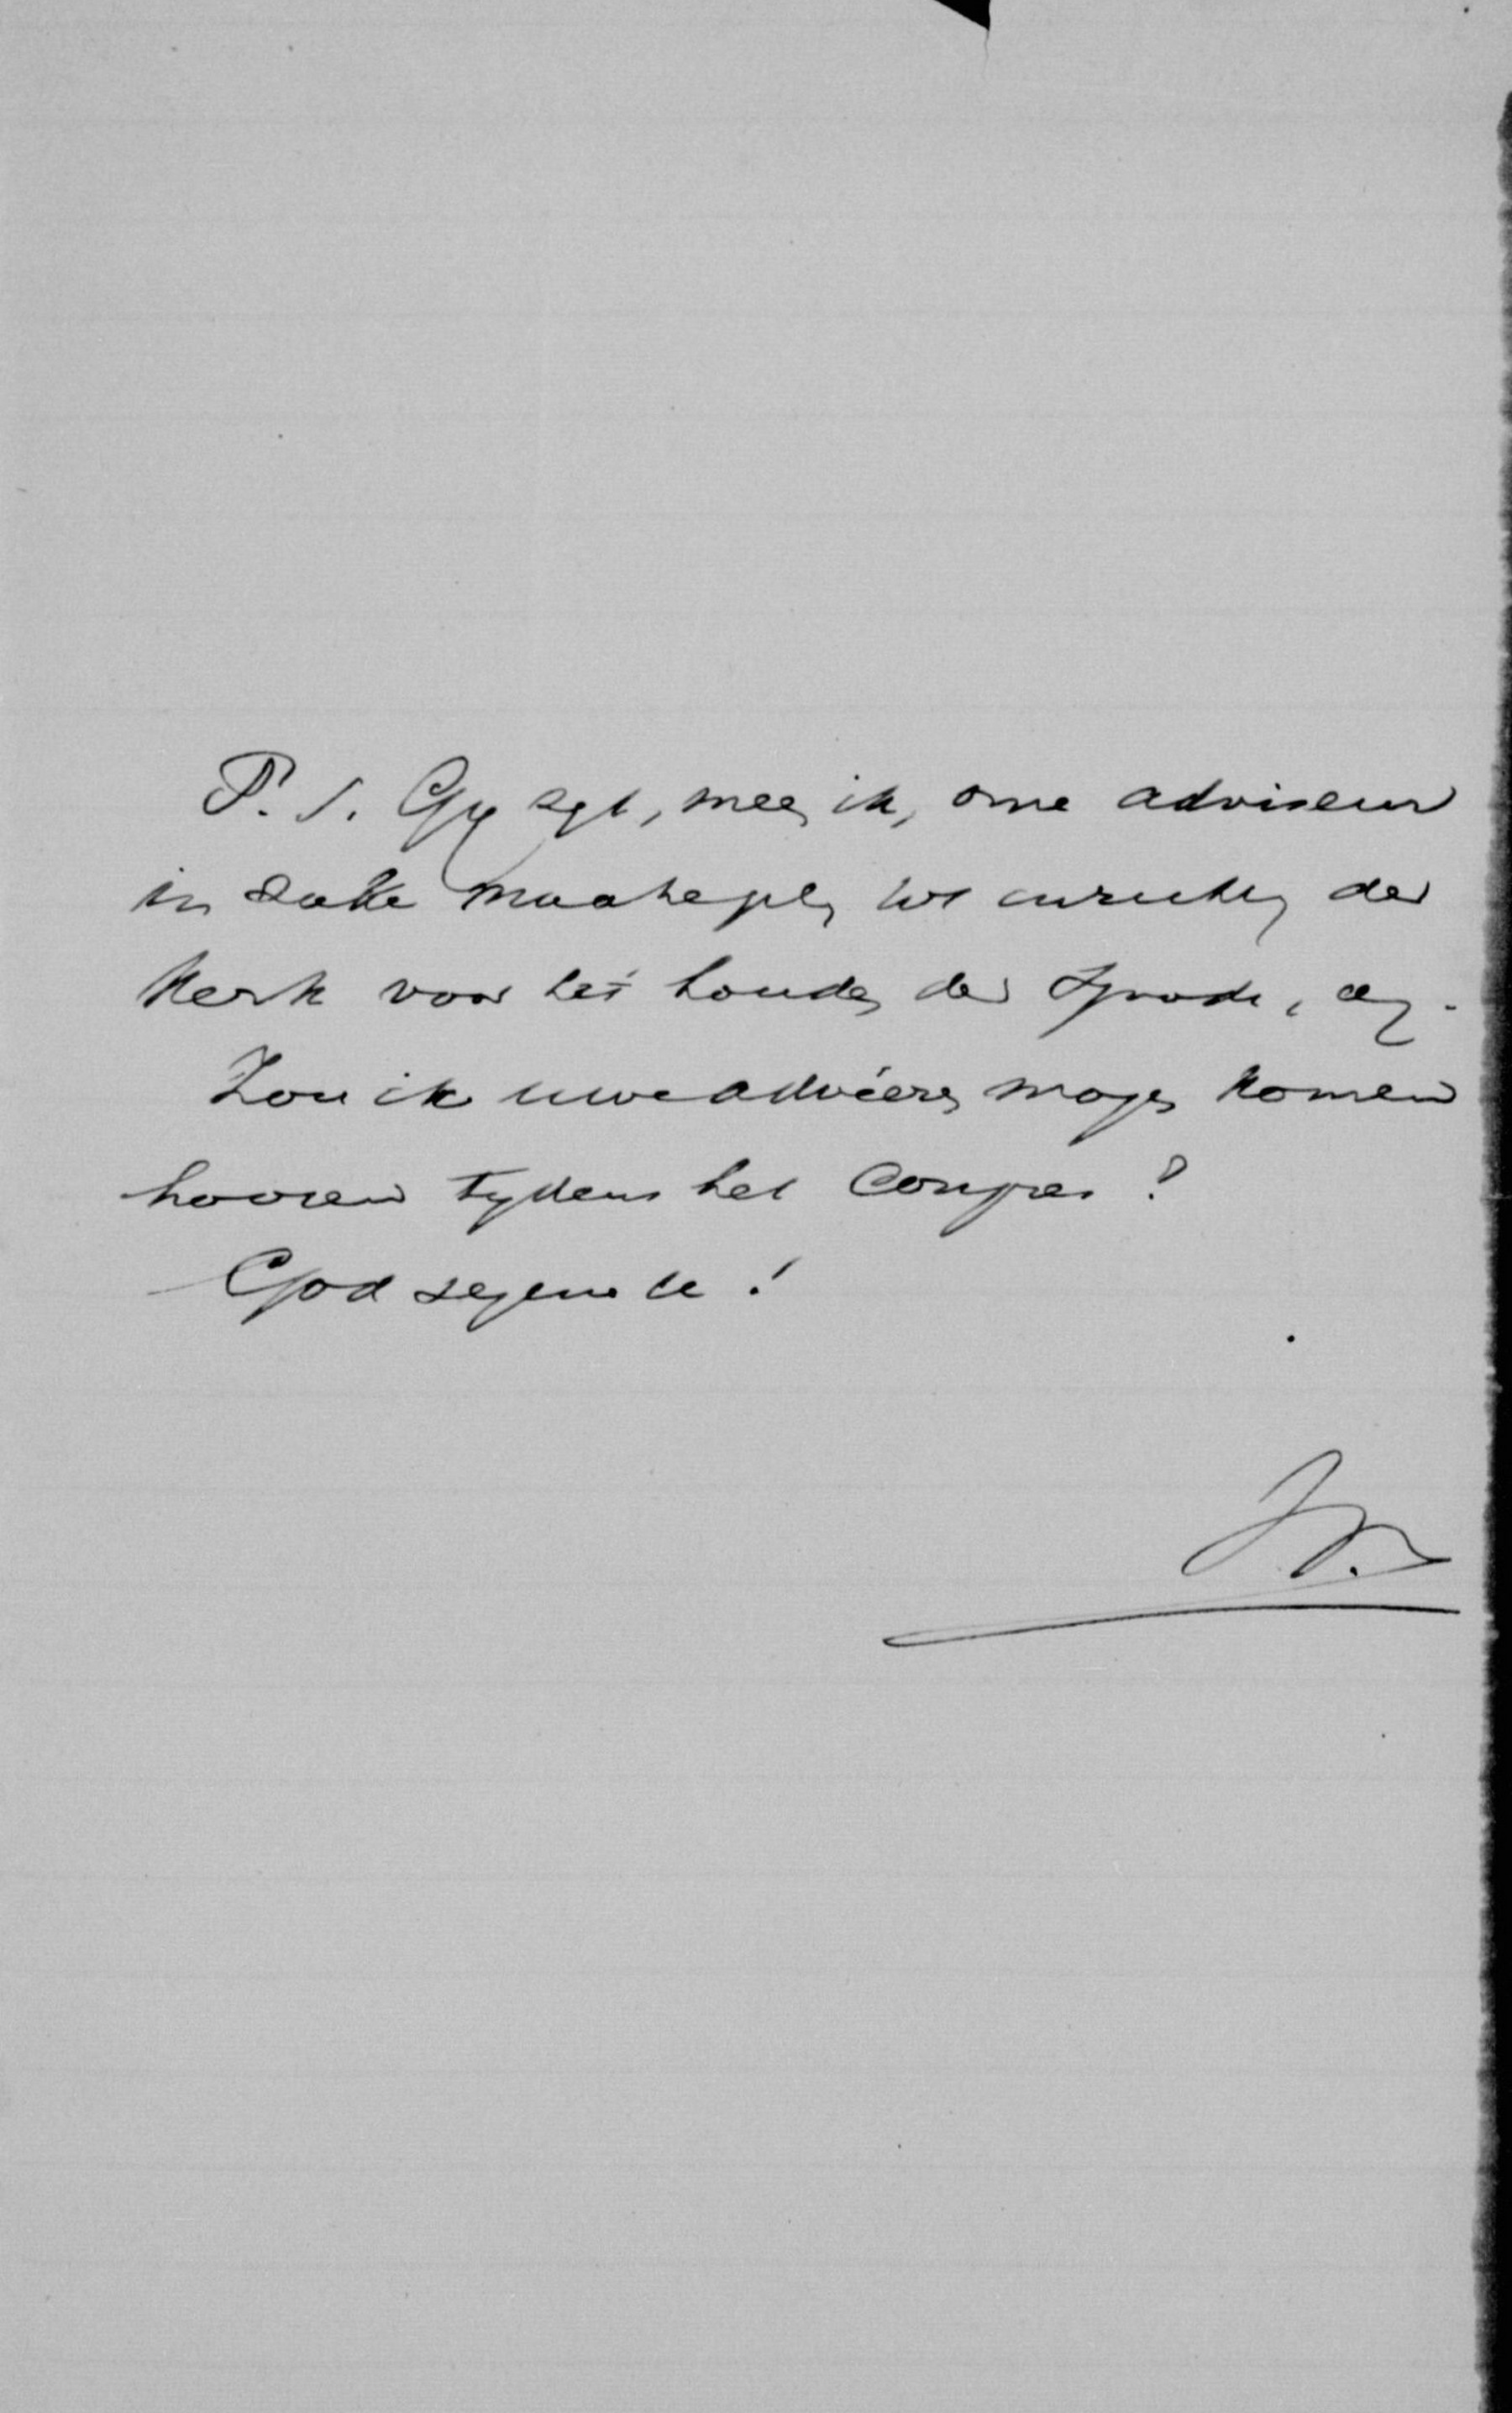 P.S. Gy zyt, meen ik, onze adviseur
in zake maatregelen tot inrichting der
Kerk voor het houden der Synode, enz.
Zou ik uwe adviezen mogen komen
hooren tydens het Congres?
God zegene U!